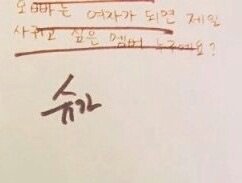 오빠는 여자가 되면 제일
사귀고 싶은 멤버 누구예요?
슈가